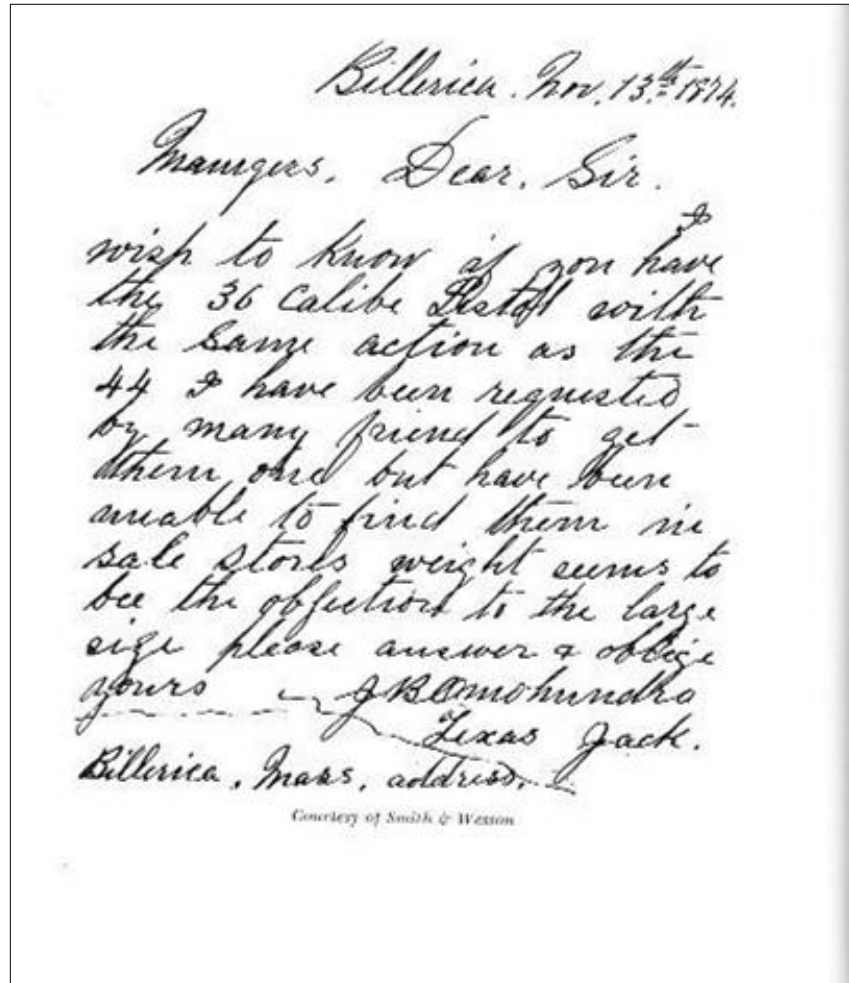 Billerica. Nov. 13th 1874.
Managers. Dear. Sir.
I
wish to know if you have
the 36 Calibe Pistol with
the same action as the
44 I have been requested
by many friend to get
them one but have been
unable to find them in
sale stores weight seems to
bee the objection to the large
size please answer & oblige
yours J B Omohundro
Texas Jack.
Billerica, Mass, address.
Courtesy of Smith & Wesson